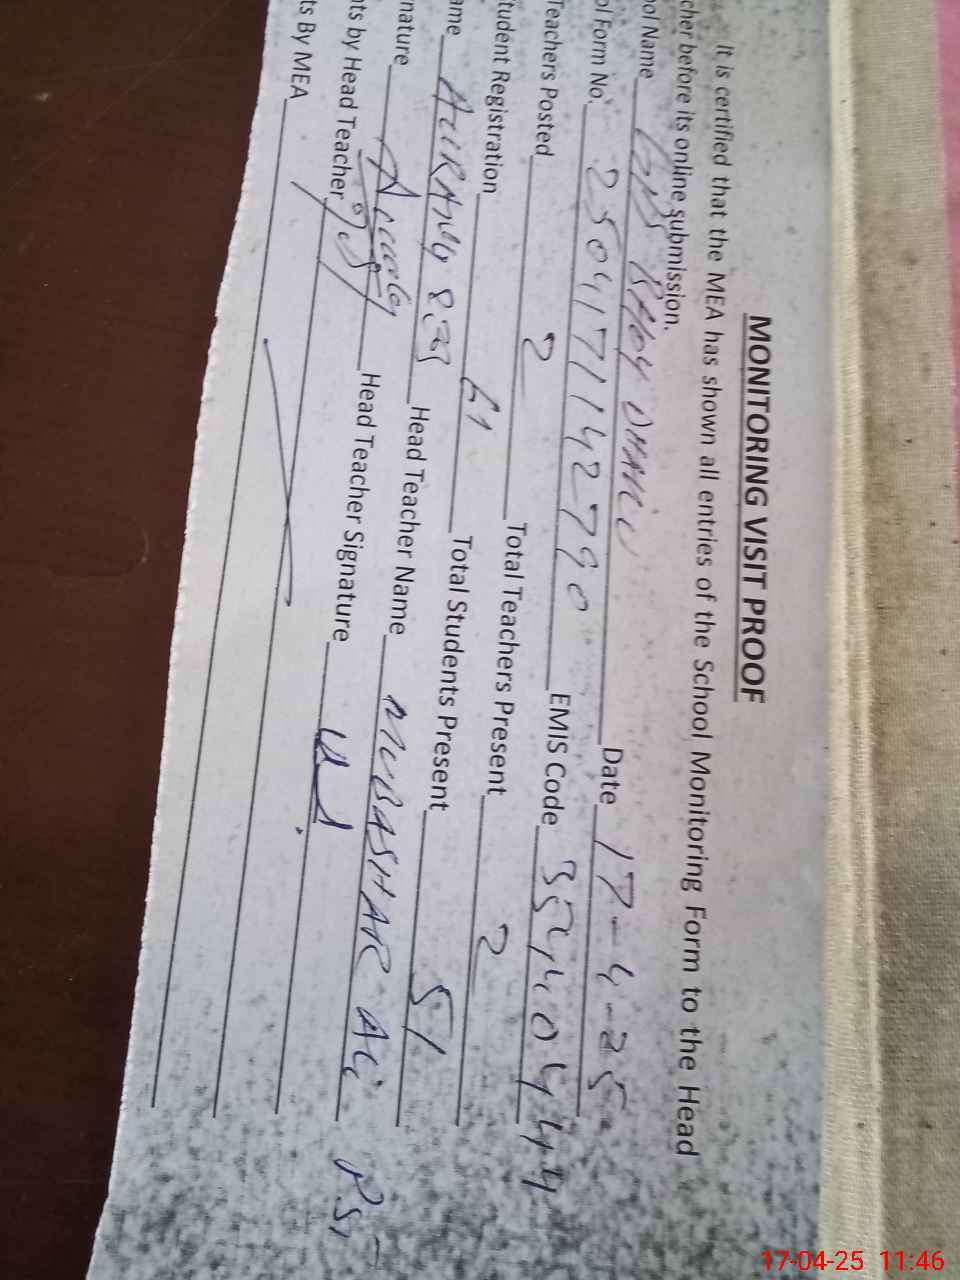 MONITORING VISIT PROOF
It is certified that the MEA has shown all entries of the School Monitoring Form to the Head
cher before its online submission.
ol Name Date 17-4-25
ol Form No. 2504171142790 EMIS Code 35440444
Teachers Posted 2 Total Teachers Present 2
tudent Registration 61 Total Students Present 51
ame Head Teacher Name MUBASHAR ALi PST
nature Head Teacher Signature
ts by Head Teacher
ts By MEA
17-04-25 11:46